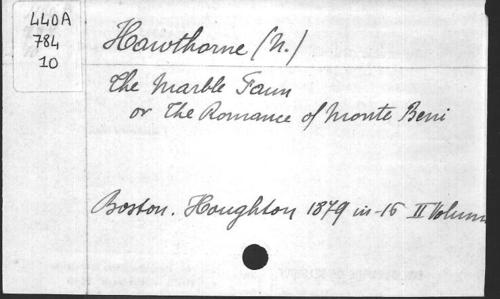 440A
784
10
Hawthorne (N.)
The Marble Faun
or The Romance of Monte Beni
Boston. Houghton 1879 in-16 II Volum